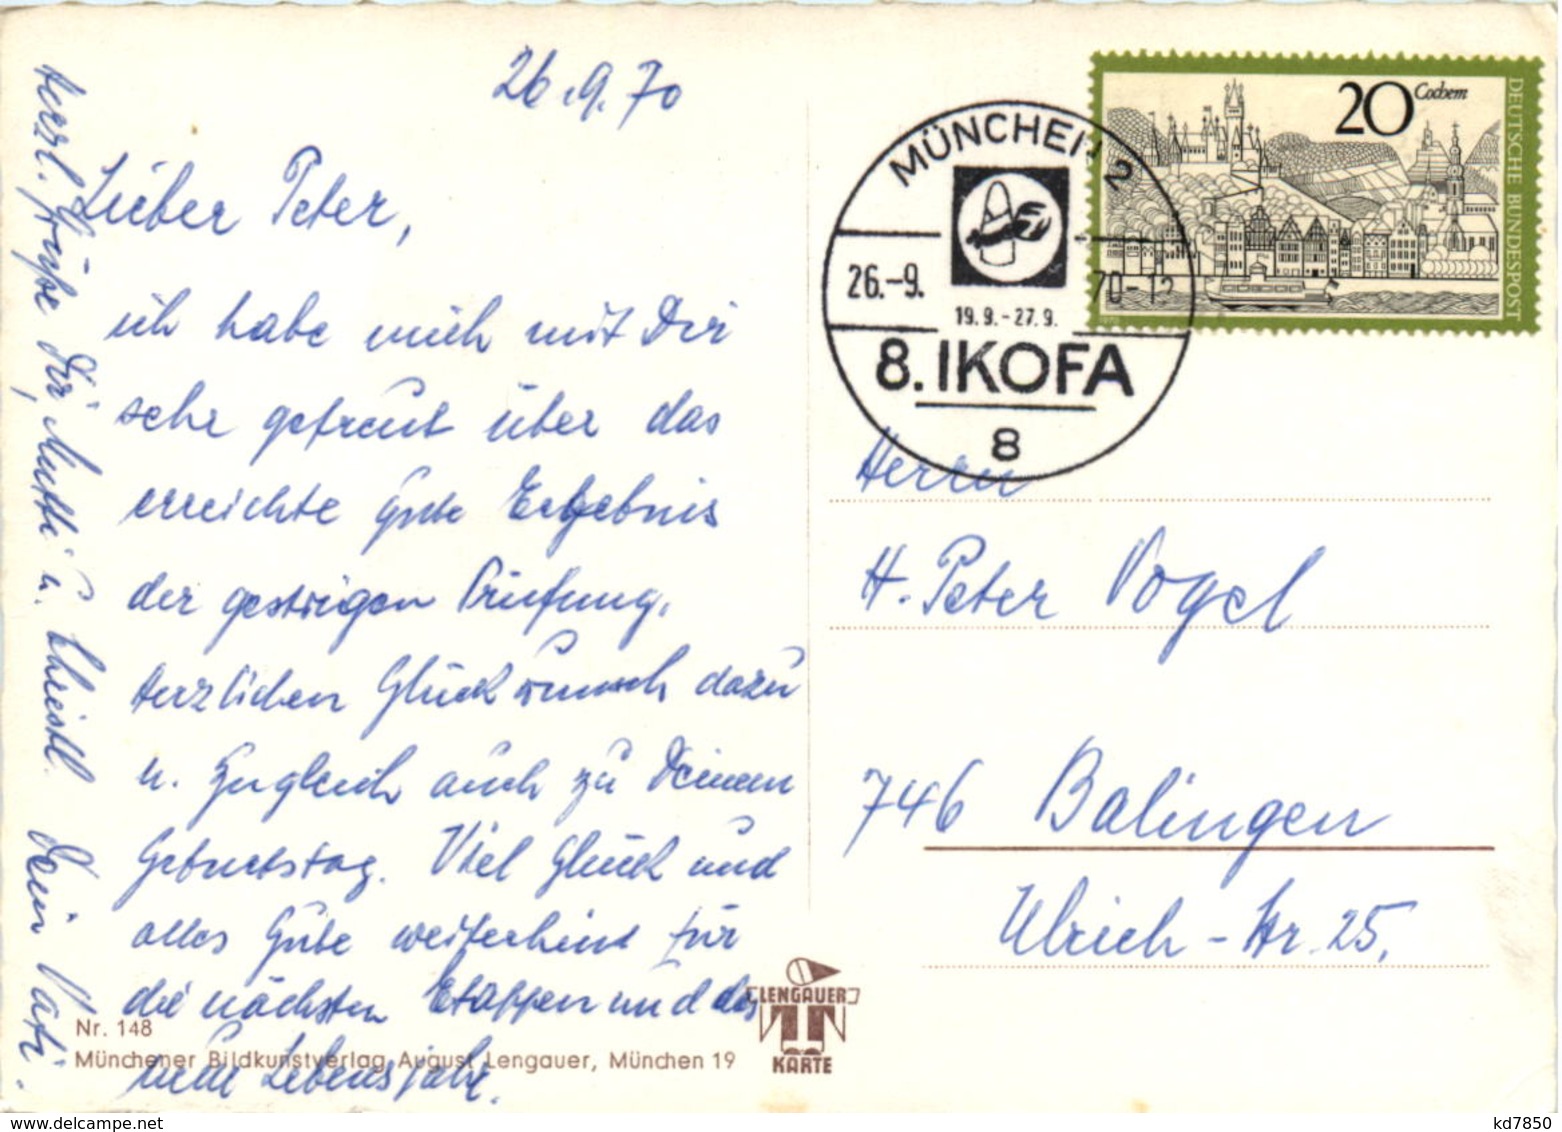 26.9.70
Lieber Peter,
ich habe mich mit Dir
sehr gefreut über das
erreichte gute Ergebnis
der gestrigen Prüfung.
Herzlichen Glückwunsch dazu
u. zugleich auch zu Deinem
Geburtstag. Viel Glück und
alles Gute weiterhin für
die nächsten Etappen und das
neue Lebensjahr.
Herzl. Grüße Dir, Mutti u. Christl. Dein Vati.
Nr. 148
Münchener Bildkunstverlag August Lengauer, München 19
LENGAUER
KARTE
MÜNCHEN 2
26.-9.
70-12
19.9.-27.9.
8. IKOFA
8
20 Cochem
DEUTSCHE BUNDESPOST
Herrn
H. Peter Vogel
746 Balingen
Ulrich-Str. 25.
www.delcampe.net
kd7850